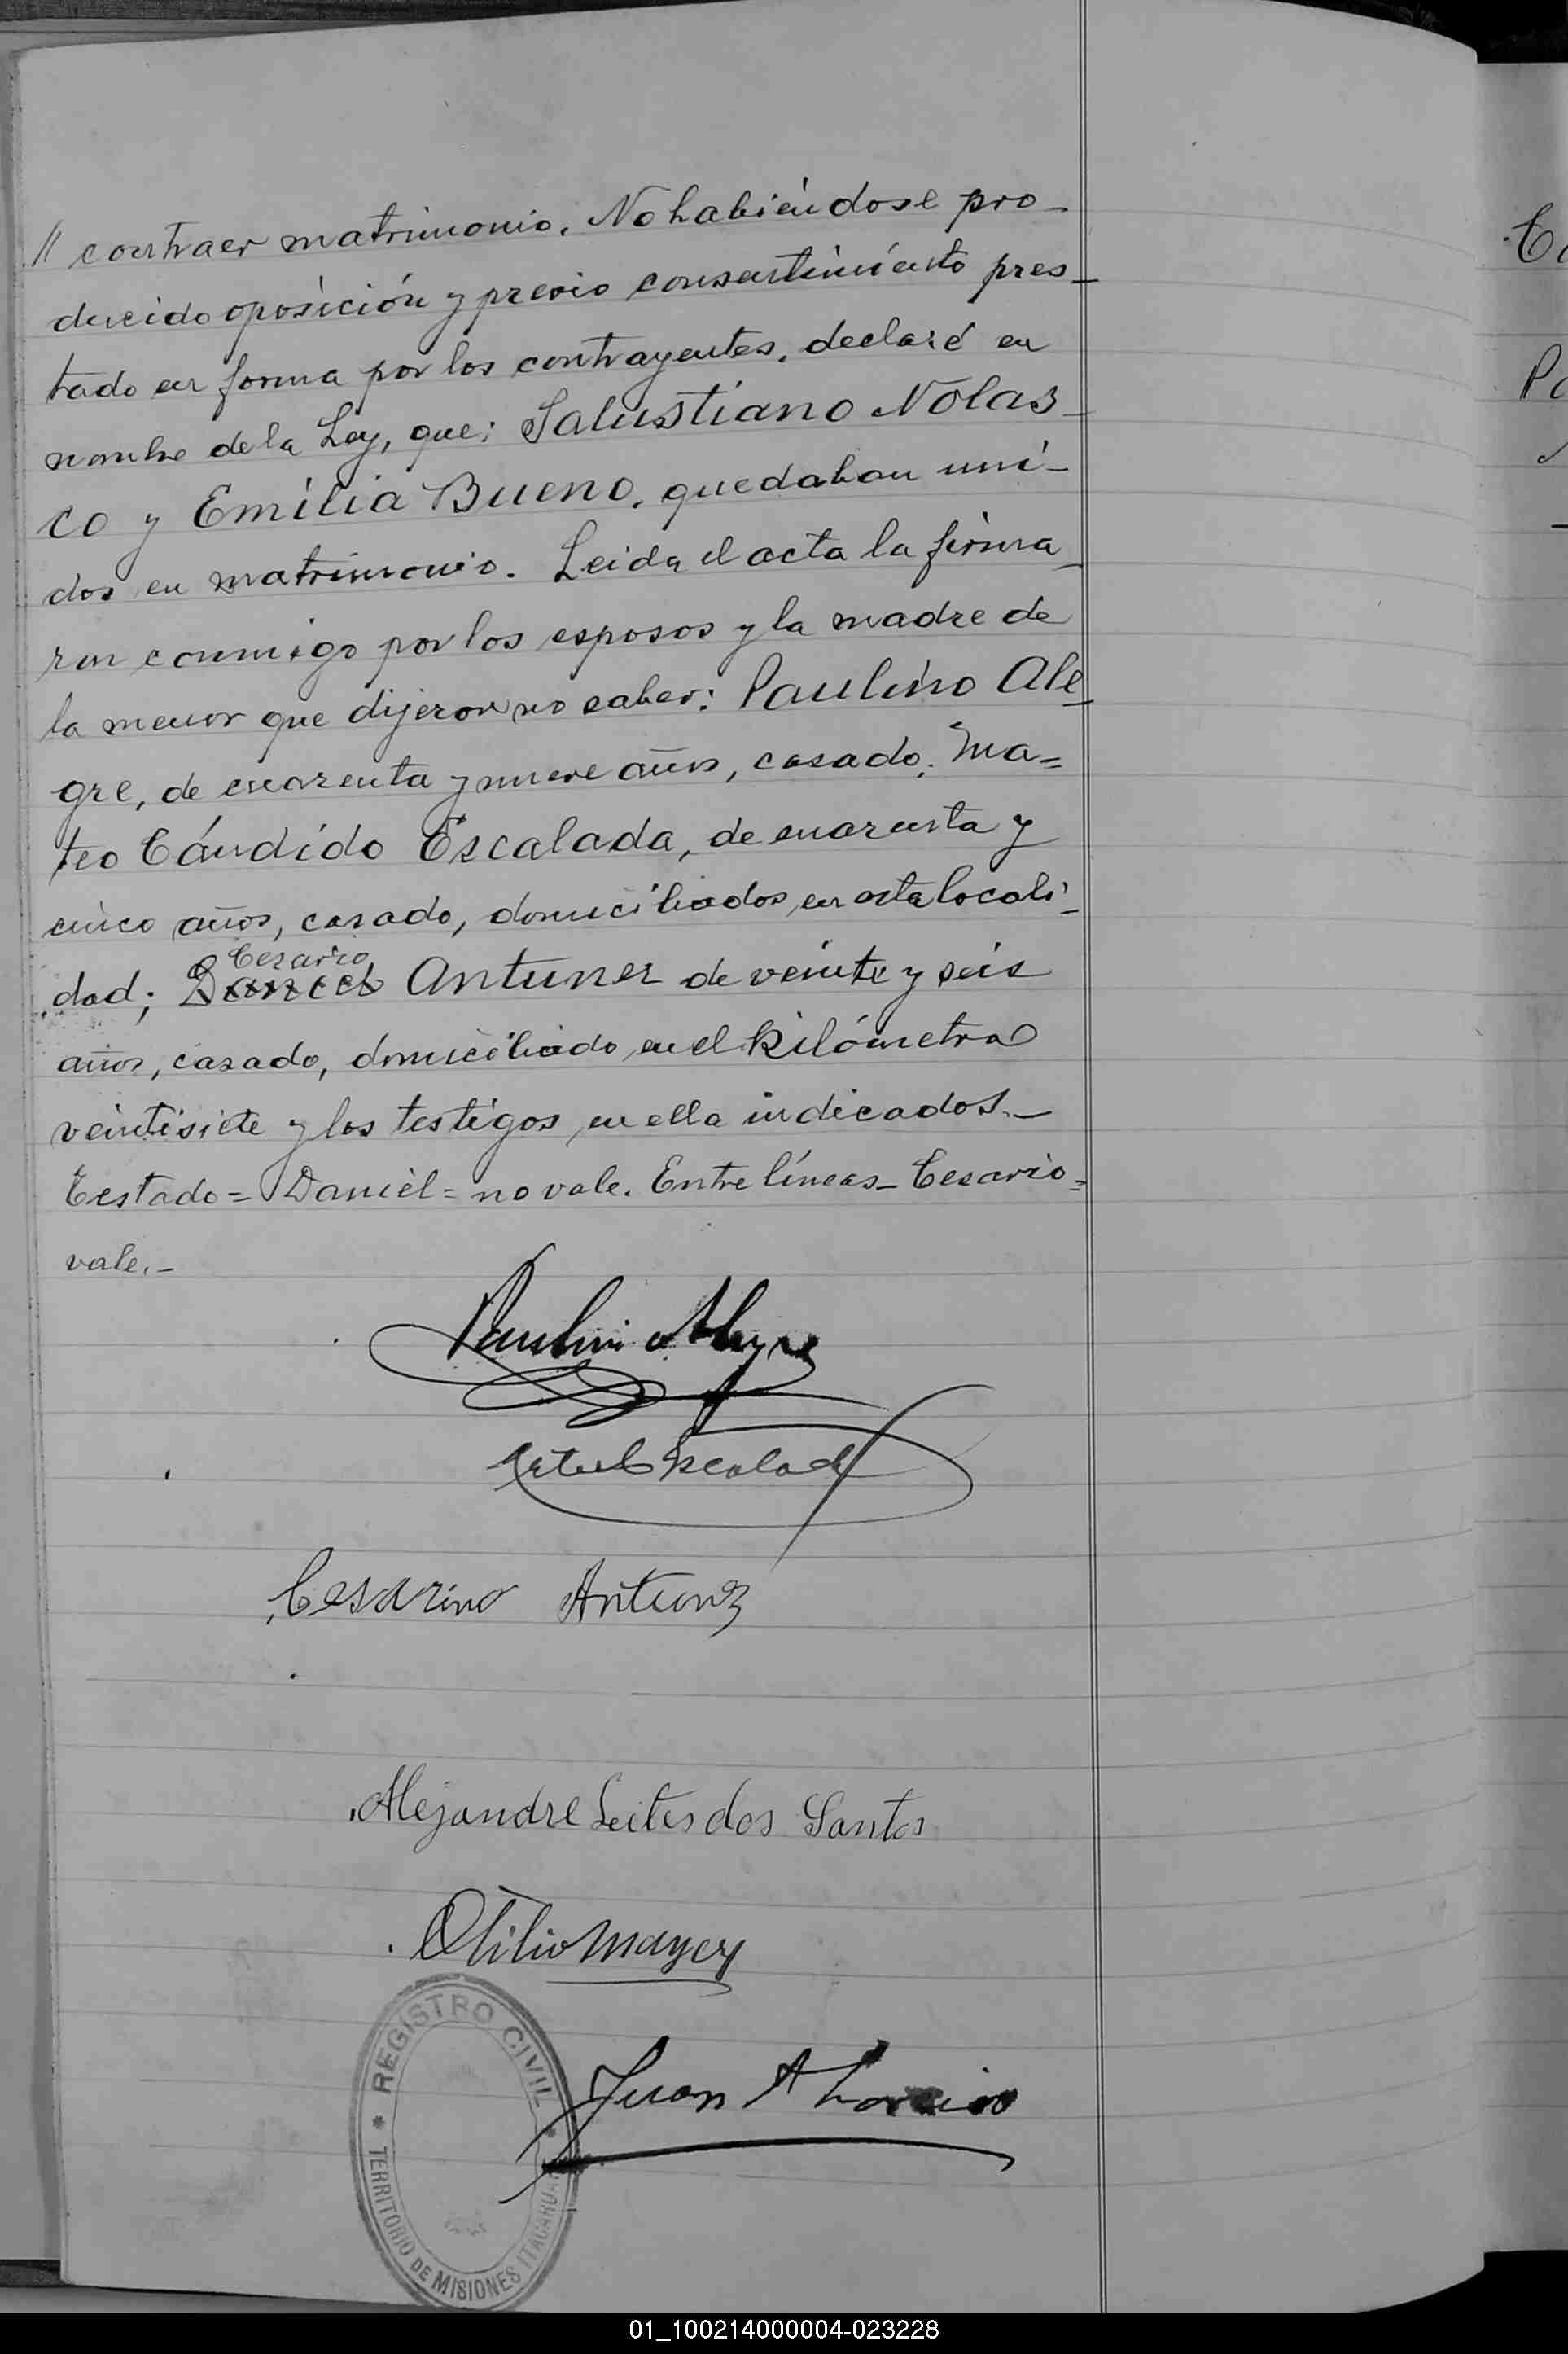 // contraer matrimonio. No habiéndose pro-
ducido oposición y previo consentimiento pres-
tado en forma por los contrayentes, declaré en
nombre de la Ley, que: Salustiano Nolas-
co y Emilia Bueno, quedaban uni-
dos en matrimonio. Leida el acta la firma-
ron conmigo por los esposos y la madre de
la menor que dijeron no saber: Paulino Ale-
gre, de cuarenta y nueve años, casado; Ma=
teo Cándido Escalada, de cuarenta y
cinco años, casado, domiciliados en esta locali-
Cesario
dad; Daniel Antunez de veinte y seis
años, casado, domiciliado en el kilómetro
veintisiete y los testigos en ella indicados.-
Testado= Daniel= no vale. Entre líneas- Cesario=
vale.-
Paulino Alegre
Escalada
Cesarino Antunz
Alejandre Leites dos Santos
Otilio Mayer
REGISTRO CIVIL
TERRITORIO DE MISIONES ITACARUARE
Juan A
Ca
Pa
01_100214000004-023228